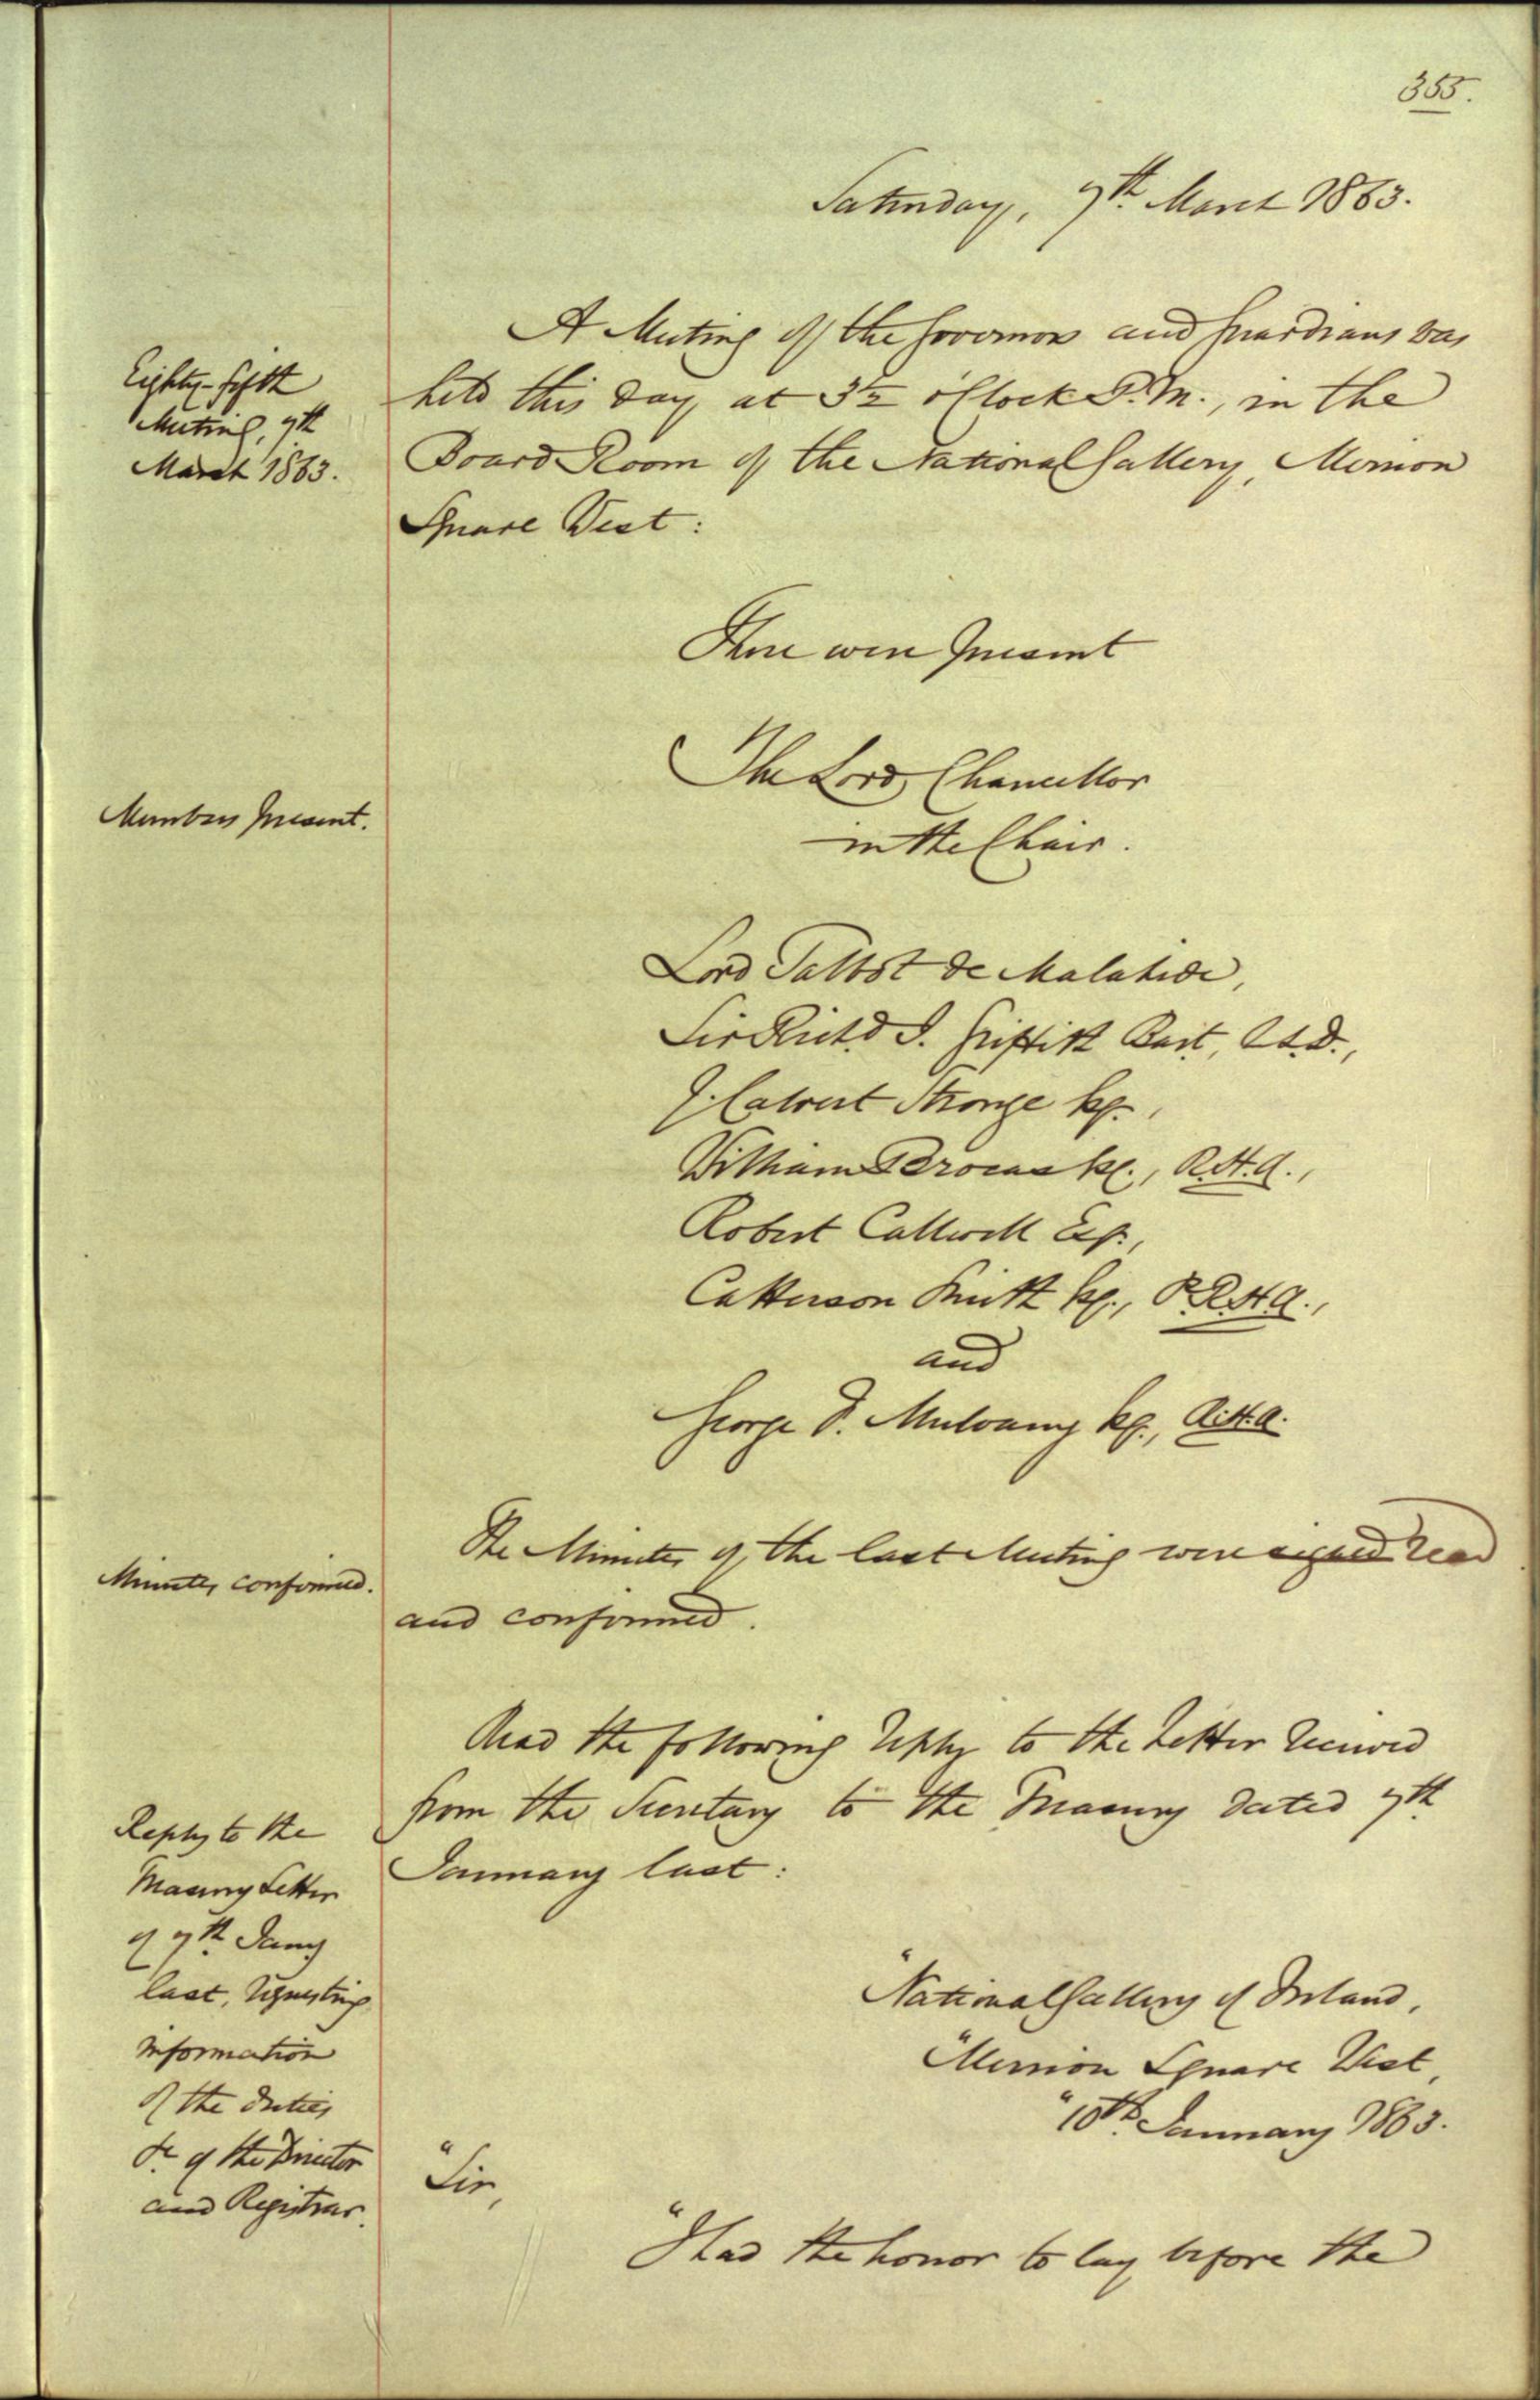 355.
Saturday, 7th March 1863.
Eighty-fifth
Meeting, 7th
March 1863.
A Meeting of the Governors and Guardians was
held this day at 3½ o'Clock P.M., in the
Board Room of the National Gallery, Merrion
Square West:
There were present
The Lord Chancellor
in the Chair.
Members present.
Lord Talbot de Malahide,
Sir Richd. J. Griffith Bart, LL.D.,
J. Calvert Stronge Esq.,
William Brocas Esq., R.H.A.,
Robert Callwell Esq.,
Catterson Smith Esq., P.R.H.A.,
and
George F. Mulvany Esq., R.H.A.
Minutes confirmed.
The Minutes of the last Meeting were signed read
and confirmed.
Reply to the
Treasury Letter
of 7th Jany
last, requesting
information
of the duties
&c of the Director
and Registrar.
Read the following reply to the Letter received
from the Secretary to the Treasury dated 7th
January last:
"National Gallery of Ireland,
"Merrion Square West,
"10th January 1863.
"Sir,
"I had the honor to lay before the